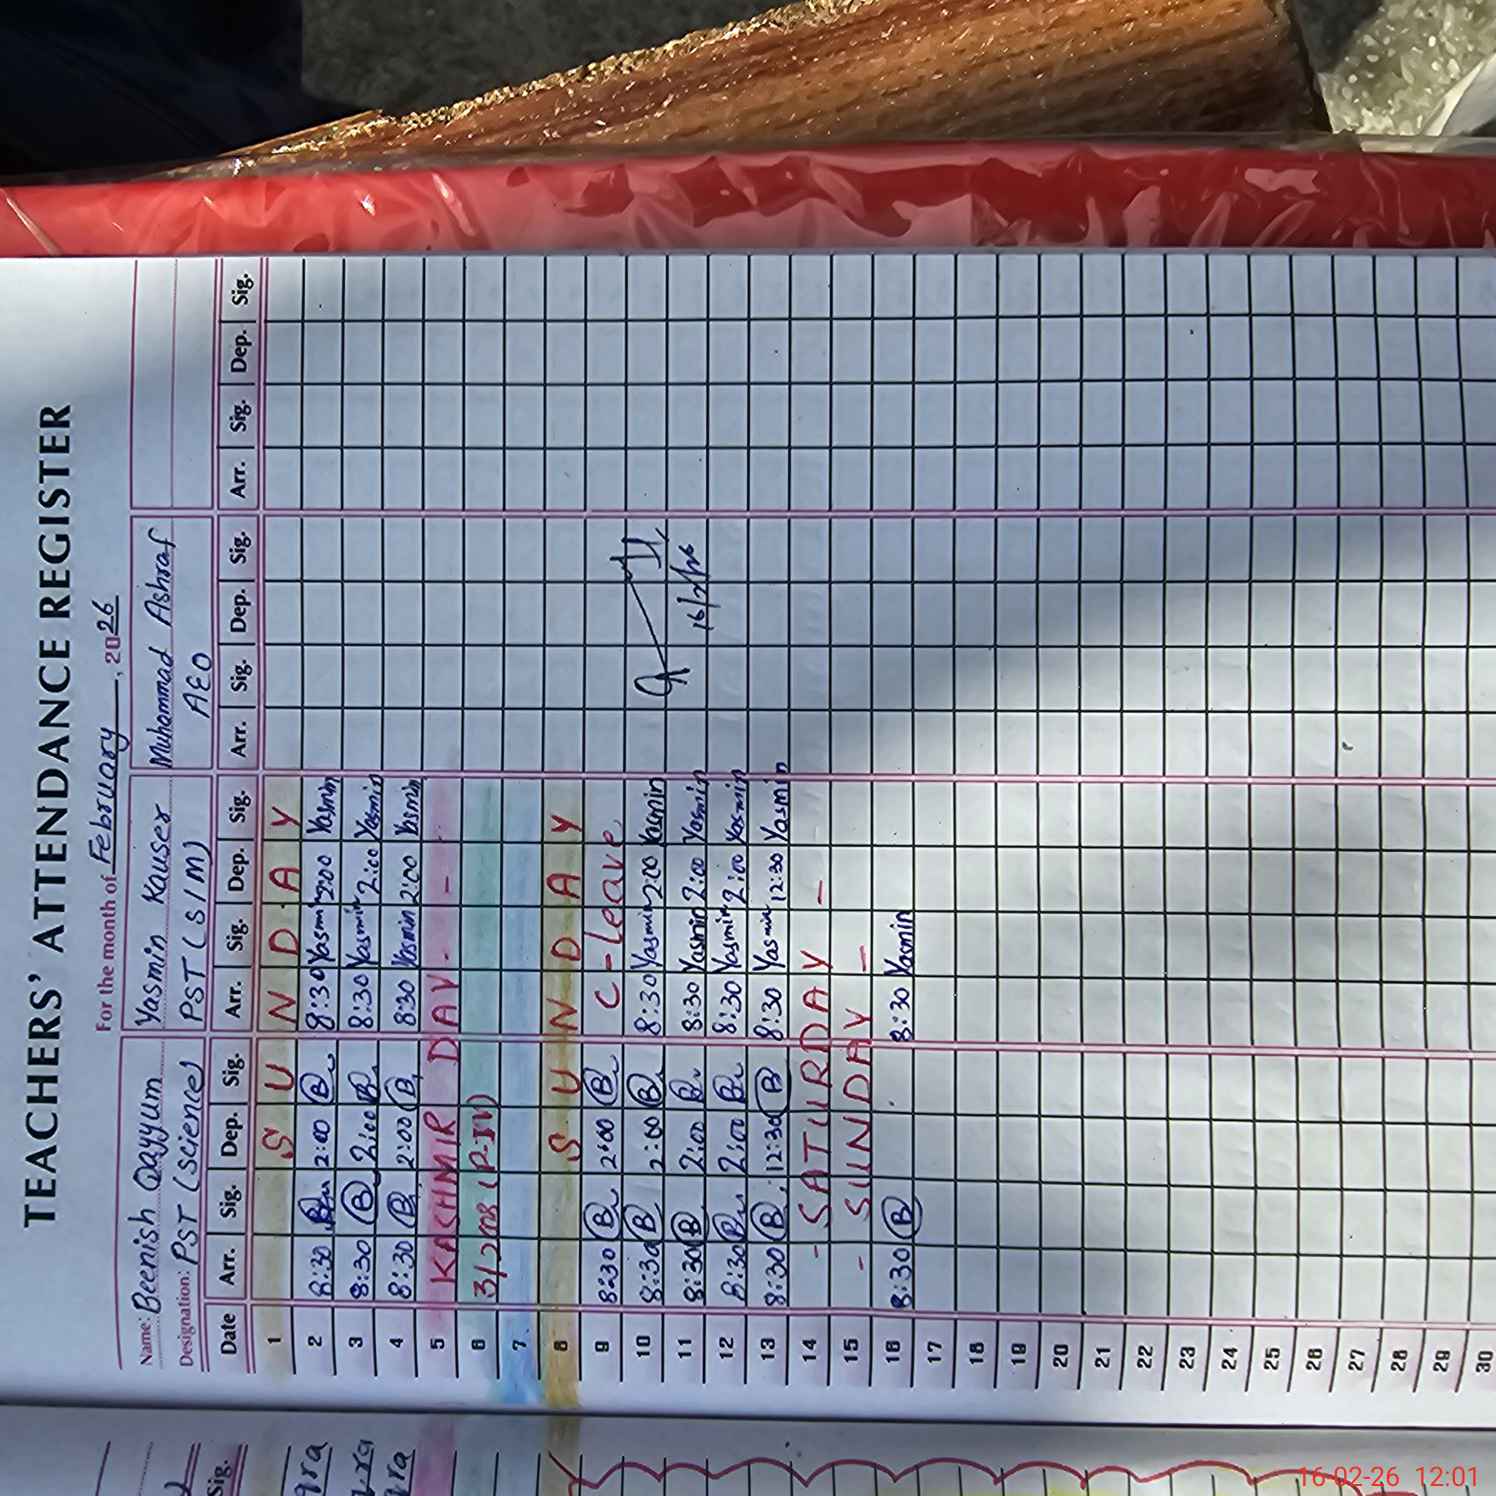 TEACHERS' ATTENDANCE REGISTER
For the month of February, 2026
Name: Beenish Qayyum Yasmin Kauser Muhammad Ashraf
Designation: PST (Science) PST (S/M) AEO
Date Arr. Sig. Dep. Sig. Arr. Sig. Dep. Sig. Arr. Sig. Dep. Sig. Arr. Sig. Dep. Sig.
1 SUNDAY
2 8:30 B 2:00 B 8:30 Yasmin 2:00 Yasmin
3 8:30 B 2:00 B 8:30 Yasmin 2:00 Yasmin
4 8:30 B 2:00 B 8:30 Yasmin 2:00 Yasmin
5 KASHMIR DAY - -
6
7
8 SUNDAY
9 8:30 B 2:00 B C-Leave
10 8:30 B 2:00 B 8:30 Yasmin 2:00 Yasmin
11 8:30 B 2:00 B 8:30 Yasmin 2:00 Yasmin
16/2/26
12 8:30 B 2:00 B 8:30 Yasmin 2:00 Yasmin
13 8:30 B 12:30 B 8:30 Yasmin 12:30 Yasmin
14 - SATURDAY -
15 - SUNDAY -
16 8:30 B 8:30 Yasmin
17
18
19
20
21
22
23
24
25
26
27
28
29
30
Sig.
16-02-26 12:01